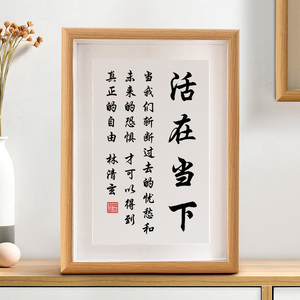 活在当下
当我们斩断过去的忧愁和
未来的恐惧 才可以得到
真正的自由 林清玄